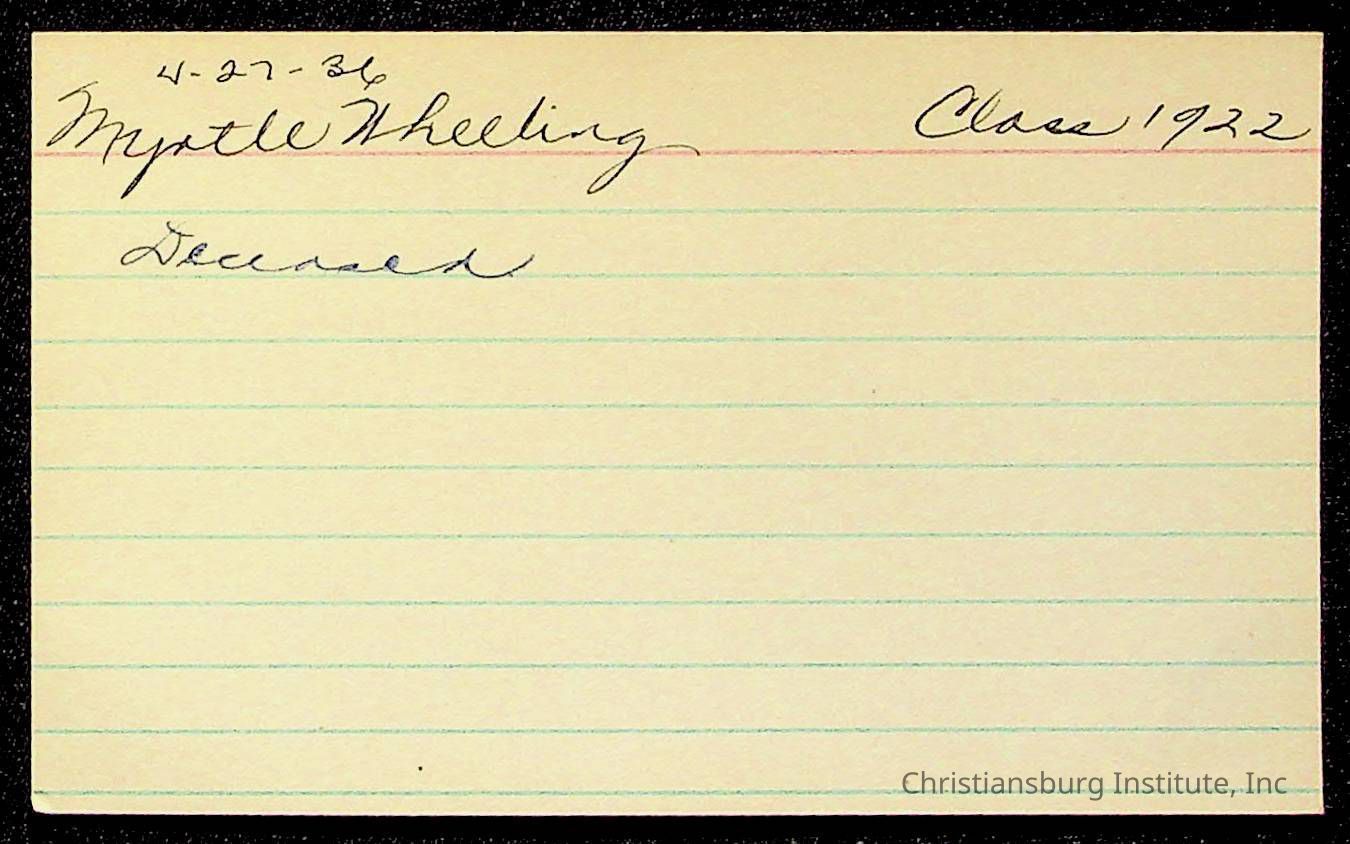 4-27-36
Myrtle Wheeling Class 1922
Deceased
Christiansburg Institute, Inc